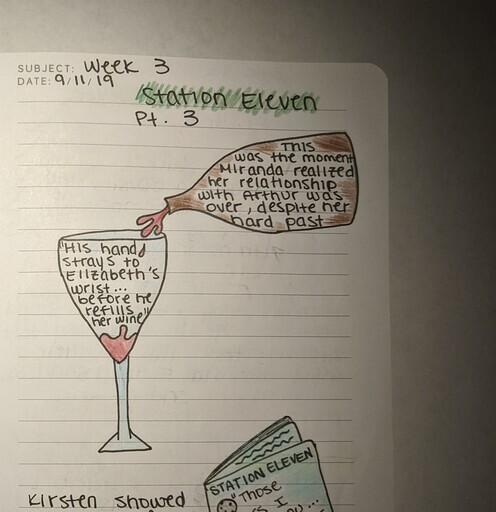 SUBJECT: Week 3
DATE: 9/11/19
Station Eleven
Pt. 3
This
was the moment
Miranda realized
her relationship
with Arthur was
over, despite her
hard past
"His hand
strays to
Elizabeth's
wrist...
before he
refills
her wine"
Kirsten showed
STATION ELEVEN
"Those
I